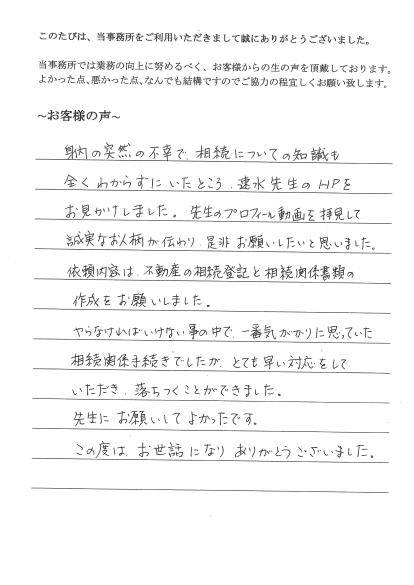 このたびは、当事務所をご利用いただきまして誠にありがとうございました。
当事務所では業務の向上に努めるべく、お客様からの生の声を頂戴しております。
よかった点、悪かった点、なんでも結構ですのでご協力の程宜しくお願い致します。
~お客様の声~
身内の突然の不幸で、相続についての知識も
全くわからずにいたところ、速水先生のHPを
お見かけしました。先生のプロフィール動画を拝見して
誠実なお人柄が伝わり、是非お願いしたいと思いました。
依頼内容は、不動産の相続登記と相続関係書類の
作成をお願いしました。
やらなければいけない事の中で、一番気がかりに思っていた
相続関係手続きでしたが、とても早い対応をして
いただき、落ちつくことができました。
先生にお願いしてよかったです。
この度は、お世話になりありがとうございました。